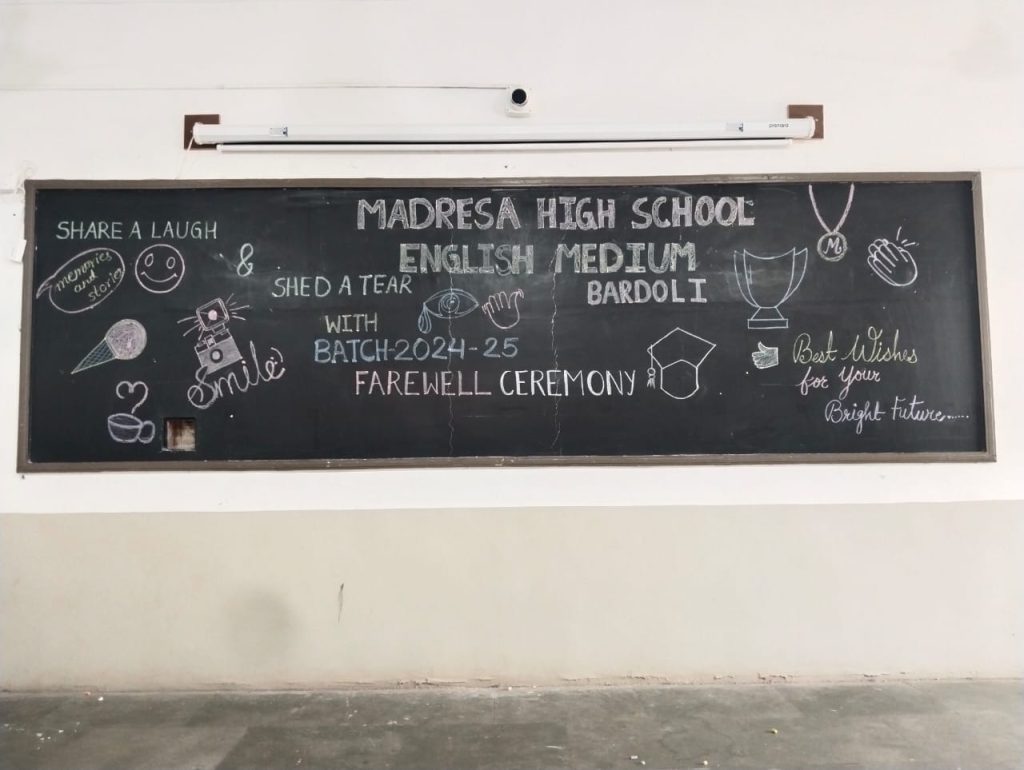 MADRESA HIGH SCHOOL
ENGLISH MEDIUM
BARDOLI
SHARE A LAUGH
memories
and
stories
&
SHED A TEAR
WITH
BATCH-2024-25
FAREWELL CEREMONY
Smile
M
Best Wishes
for Your
Bright Future......